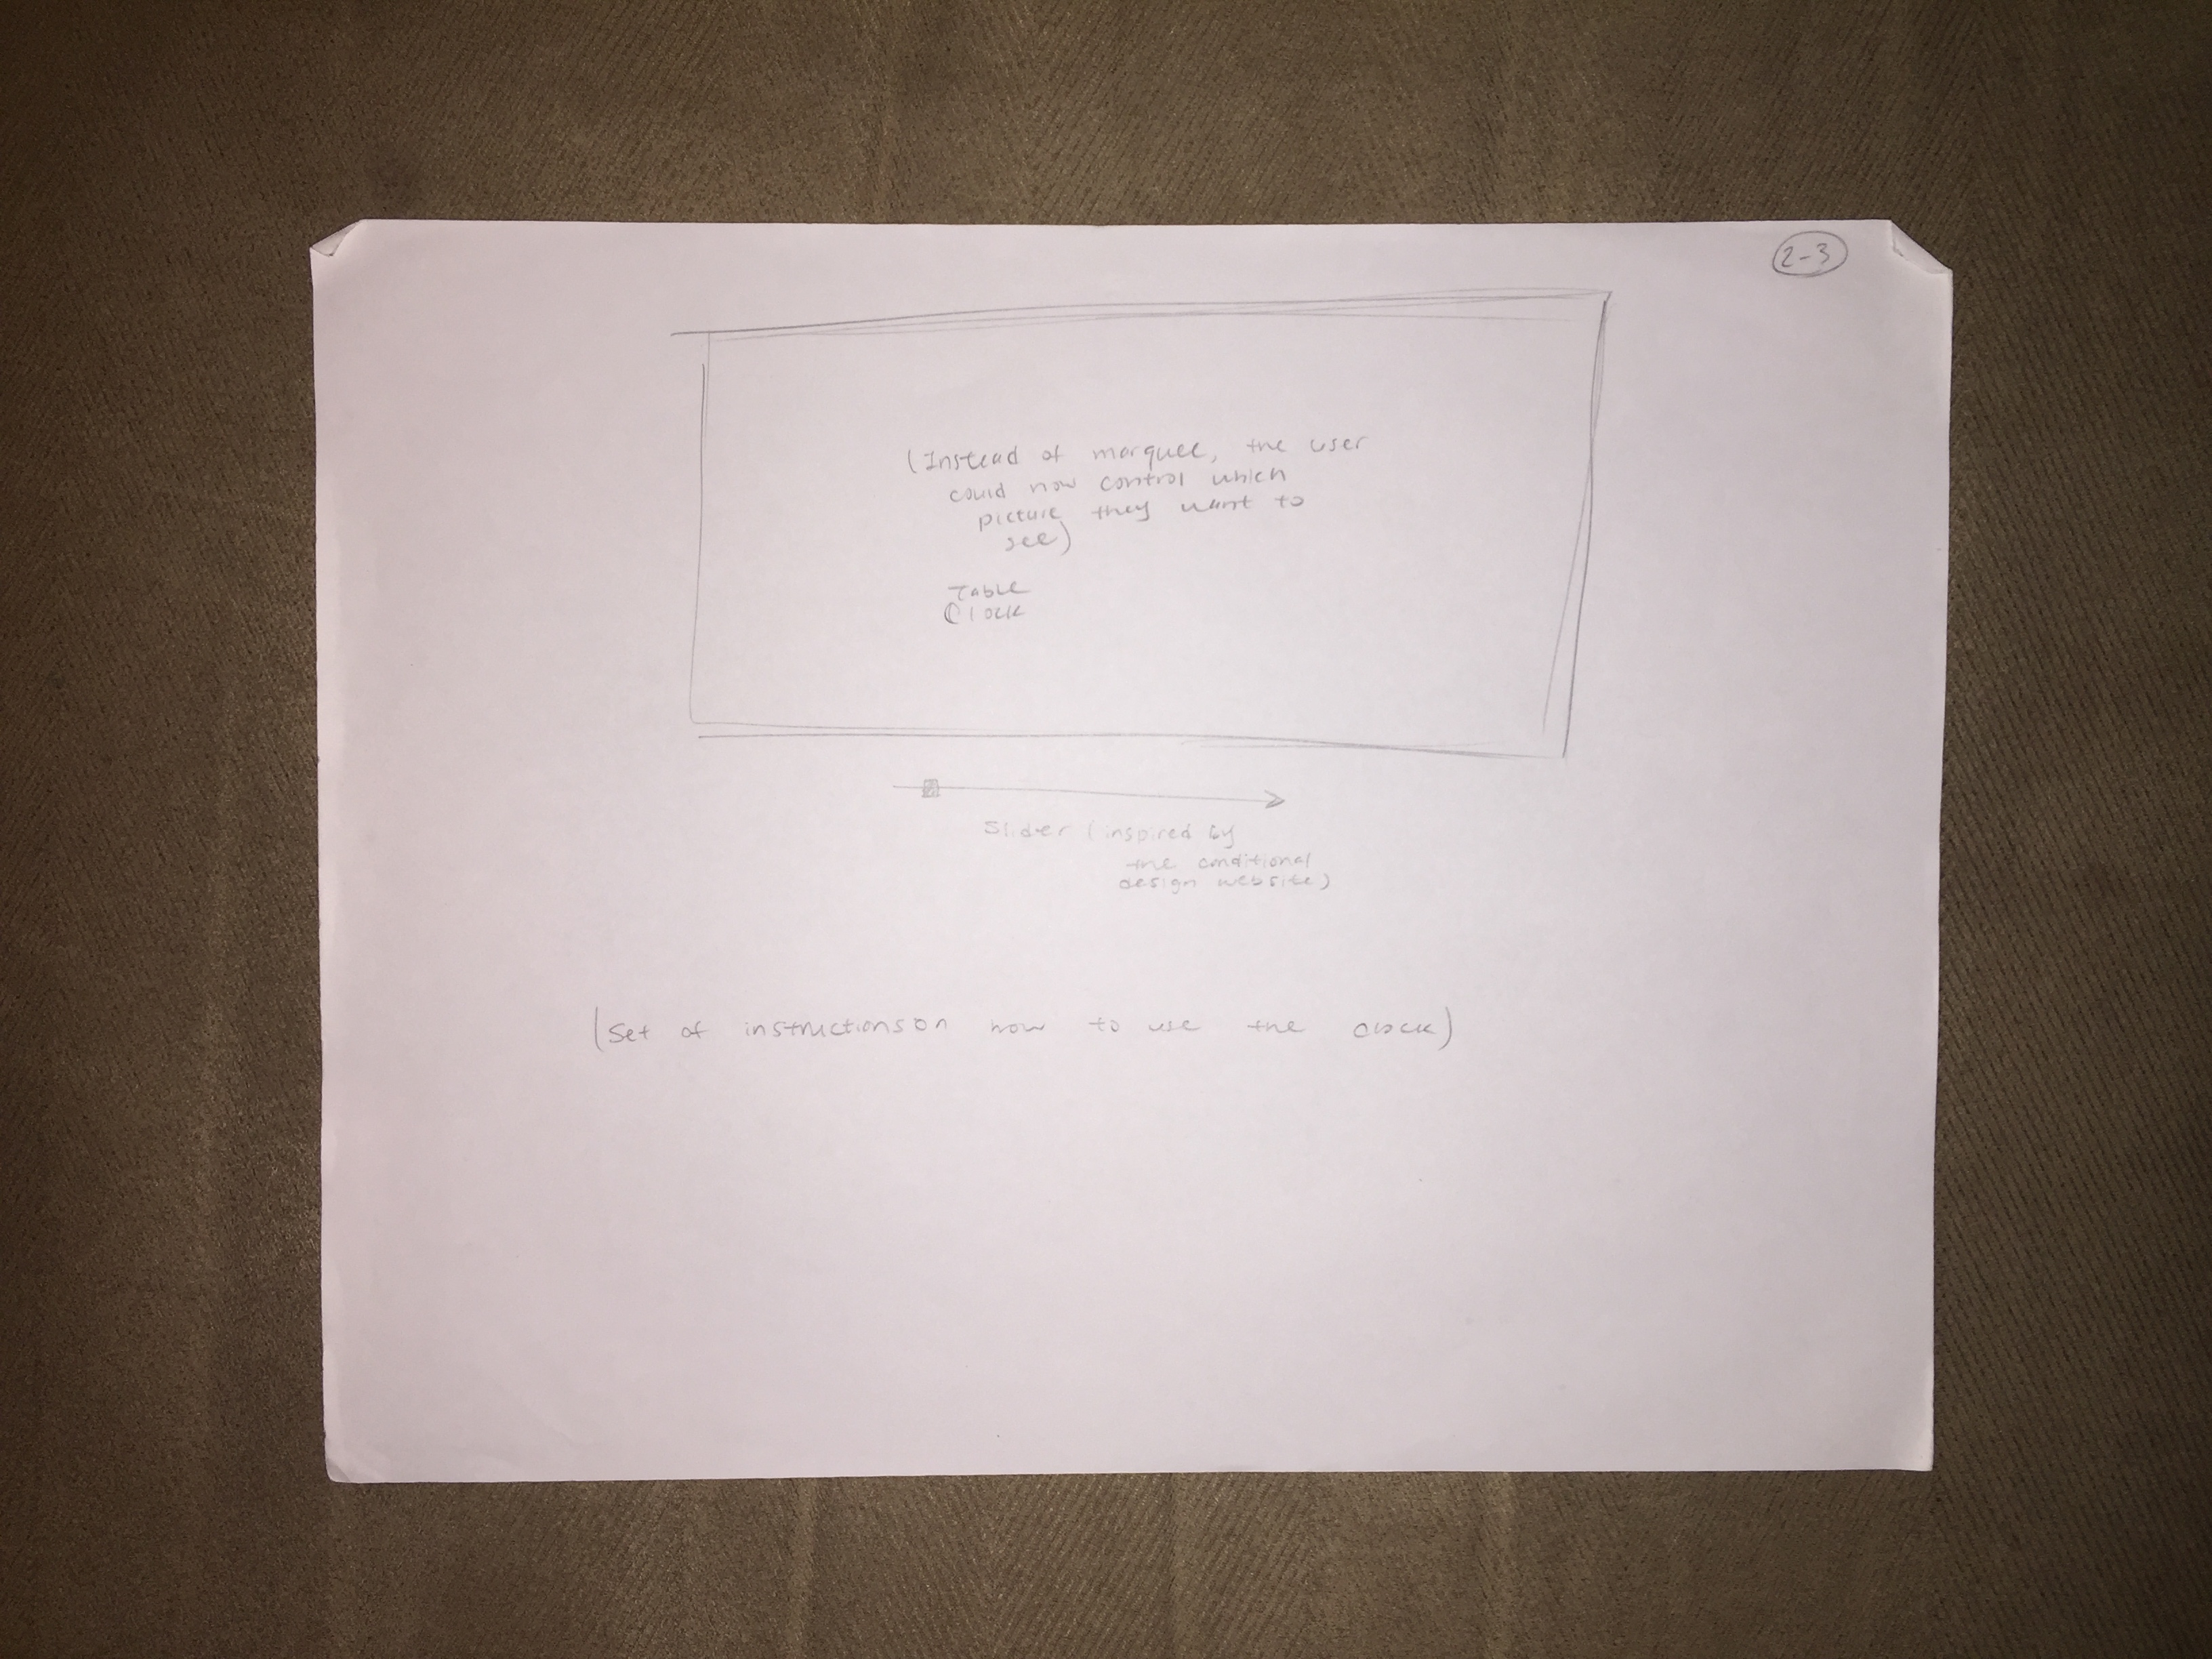 2-3
(Instead of marquee, the user
could now control which
picture they want to
see)
Table
Clock
Slider (inspired by
the conditional
design website)
(Set of instructions on how to use the clock)